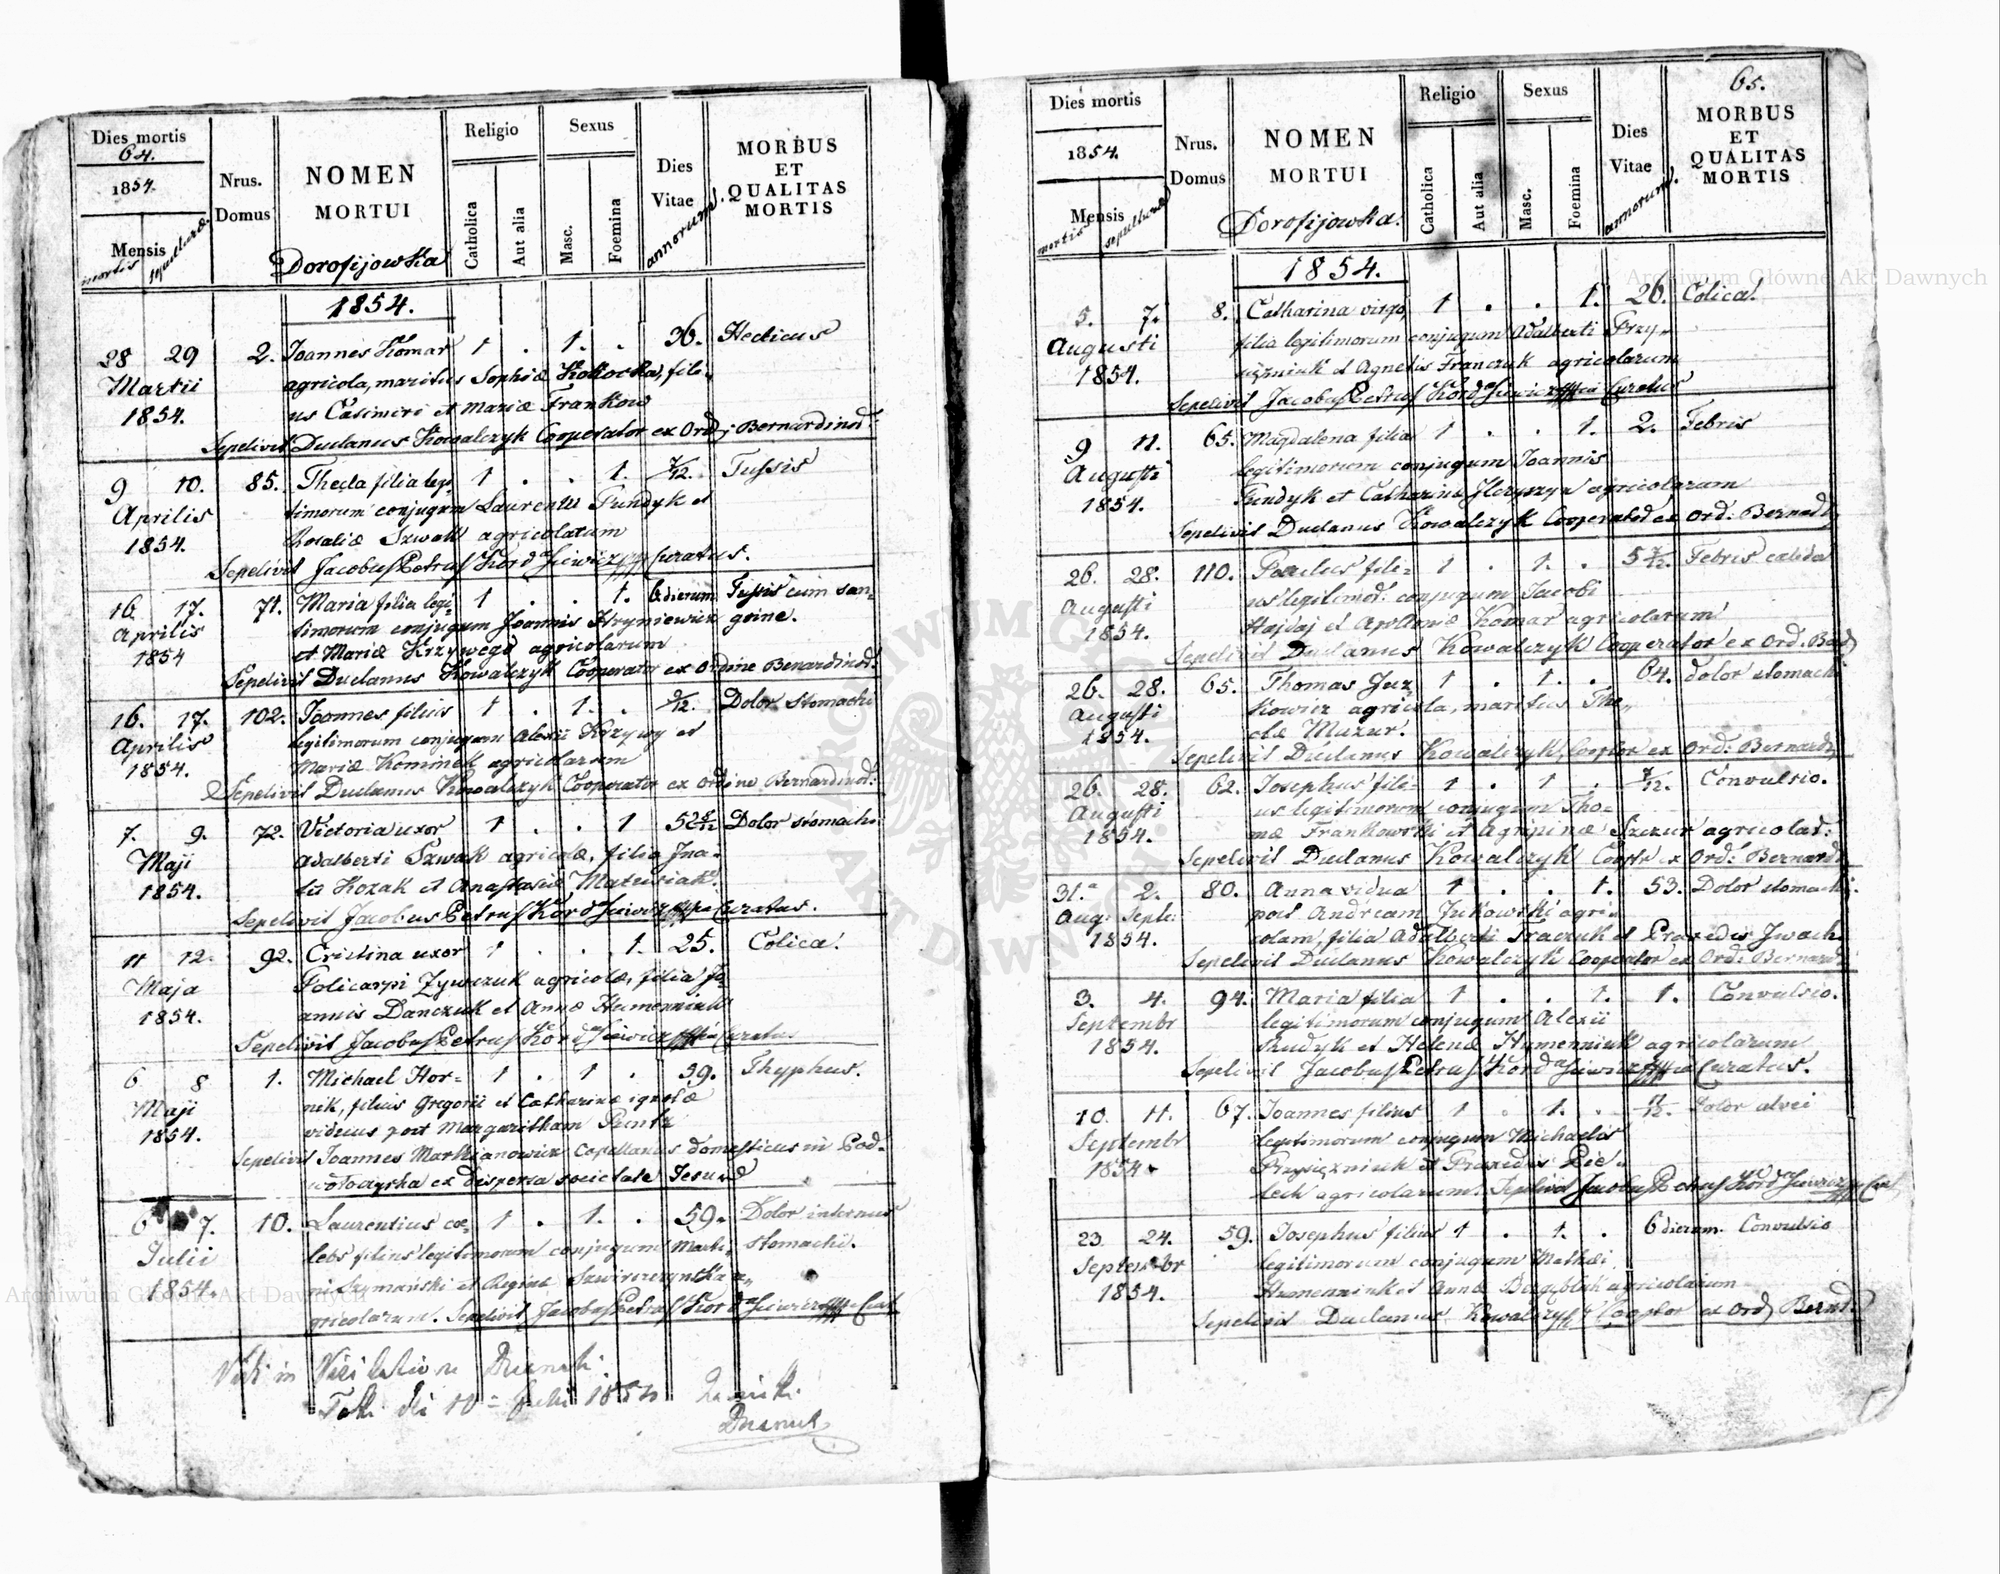 Dies mortis
64.
1854.
Mensis
mortis sepulturæ
Nrus.
Domus
NOMEN
MORTUI
Dorofijowka
Religio
Catholica
Aut alia
Sexus
Masc.
Foemina
Dies
Vitae
annorum
MORBUS
ET
QUALITAS
MORTIS
1854.
28 29 2. Joannes Komar 1 . 1. . 36. Hecticus
Martii agricola, maritus Sophiæ fili-
1854. us Casimiri et Mariæ Frankow
Sepelivit Duclanus Kowalczyk Cooperator ex Ord: Bernardinor:
9 10. 85. Thecla filia legi- 1 . . 1. 7/12. Tussis
Aprilis timorum conjugum Laurentii Fundyk et
1854. Rosaliæ Szwak agricolarum
Sepelivit Jacobus Petrus Curatus.
16 17. 71. Maria filia legi- 1 . . 1. 6 dierum Tussis cum san-
Aprilis timorum conjugum Joannis Hryniewicz guine.
1854 et Mariæ Krzywego agricolarum
Sepelivit Duclanus Kowalczyk Cooperator ex Ordine Benardinor:
16. 17. 102. Joannes filius 1 . 1. . 9/12. Dolor stomachi
Aprilis legitimorum conjugum Alexii Krzywy et
1854. Mariæ Kominek agricolarum
Sepelivit Duclanus Kowalczyk Cooperator ex Ordine Bernardinor:
7. 9. 72. Victoria uxor 1 . . 1 52 8/12 Dolor stomachi
Maji Adalberti Szwak agricolæ, filia Igna-
1854. tii Kozak et Anastasiæ Matusiak
Sepelivit Jacobus Petrus Curatus.
11 12. 92. Cristina uxor 1 . . 1. 25. Colica.
Maja Policarpi Zywczuk agricolæ, filia Jo-
1854. annis Danczuk et Annæ Humenniuk
Sepelivit Jacobus Petrus Curatus
6 8 1. Michael Hor- 1 . 1 . 39. Thyphus.
Maji nik, filius Gregorii et Catharinæ ignotæ
1854. viduus post Margaritham
Sepelivit Joannes Markianowicz Capellanus domesticus in Pod-
wołoczyska ex dispersa societate Jesu
6 7. 10. Laurentius cœ- 1 . 1. . 59. Dolor internus
Julii lebs filius legitimorum conjugum Marti- stomachi.
1854. ni Szymański et Reginæ a-
gricolarum. Sepelivit Jacobus Petrus
Vidi in Visitatione
10 Julii 1854
Dies mortis
1854.
Mensis
mortis sepulturæ
Nrus.
Domus
NOMEN
MORTUI
Dorofijowka.
Religio
Catholica
Aut alia
Sexus
Masc.
Foemina
Dies
Vitae
annorum.
65.
MORBUS
ET
QUALITAS
MORTIS
1854.
5. 7. 8. Catharina virgo, 1 . . 1. 26. Colica.
Augusti filia legitimorum conjugum Adalberti Przy-
1854. siężniuk et Agnetis Franczuk agricolarum
Sepelivit Jacobus Petrus Curatus
9 11. 65. Magdalena filia 1 . . 1. 2. Febris
Augusti legitimorum conjugum Joannis
1854. Fundyk et Catharinæ agricolarum
Sepelivit Duclanus Kowalczyk Cooperator ex Ord: Bernard
26. 28. 110. Paulus fili- 1 . 1. . 5 7/12. Febris calida
Augusti us legitimor: conjugum Jacobi
1854. Hajdaj et Apolloniæ Komar agricolarum
Sepelivit Duclanus Kowalczyk Cooperator ex Ord:
26. 28. 65. Thomas Juz- 1 . 1. . 64. dolor stomachi
Augusti kowicz agricola, maritus The-
1854. clæ Mazur.
Sepelivit Duclanus Kowalczyk ex Ord: Bernardi
26. 28. 62. Josephus fili- 1 . 1 . 7/12. Convulsio.
Augusti us legitimorum conjugum Tho-
1854. mæ Frankowski et Agripinæ Szczur agricolar:
Sepelivit Duclanus Kowalczyk ex Ord: Bernardi
31. 2. 80. Anna vidua 1 . . 1. 53. Dolor stomachi.
Aug: Septe: post Andream Jukowski agri-
1854. colam, filia Adalberti et Praxedis
Sepelivit Duclanus Kowalczyk Cooperator ex Ord: Bernard
3. 4. 94. Maria filia 1 . . 1. 1. Convulsio.
Septembr legitimorum conjugum Alexii
1854. et Helenæ Humenniuk agricolarum
Sepelivit Jacobus Petrus Curatus.
10. 11. 67. Joannes filius 1 . 1. . 11/12. Dolor alvei
Septembr legitimorum conjugum Michaelis
1854. Przysiężniuk et Praxedis
agricolarum. Sepelivit Jacobus Petrus
23 24. 59. Josephus filius 1 . 1. . 6 dierum. Convulsio
Septembr legitimorum conjugum Mathæi
1854. et Annæ agricolarum
Sepelivit Duclanus Kowalczyk ex Ord: Bernd:
Archiwum Główne Akt Dawnych
Archiwum Główne Akt Dawnych
ARCHIWUM GŁÓWNE AKT DAWNYCH